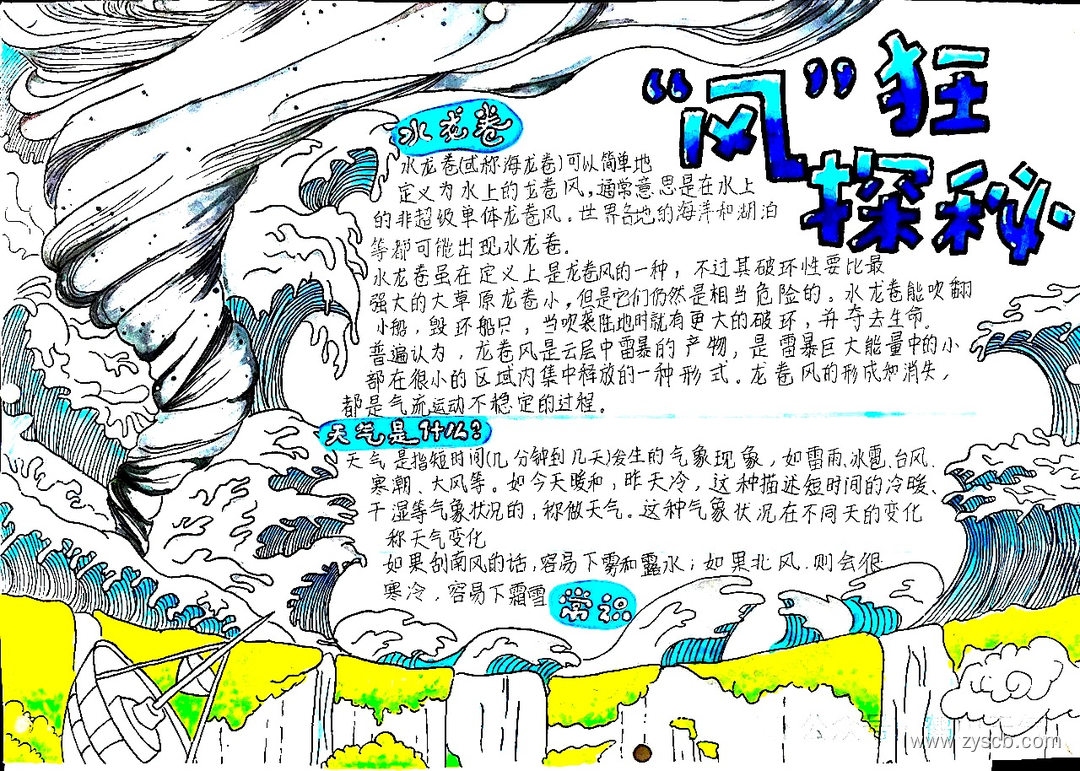 “风”狂
探秘
水龙卷
水龙卷(或称海龙卷)可以简单地
定义为水上的龙卷风,通常意思是在水上
的非超级单体龙卷风。世界各地的海洋和湖泊
等都可能出现水龙卷。
水龙卷虽在定义上是龙卷风的一种,不过其破环性要比最
强大的大草原龙卷小,但是它们仍然是相当危险的。水龙卷能吹翻
小船,毁环船只,当吹袭陆地时就有更大的破环,并夺去生命。
普遍认为,龙卷风是云层中雷暴的产物,是雷暴巨大能量中的小
部在很小的区域内集中释放的一种形式。龙卷风的形成和消失,
都是气流运动不稳定的过程。
天气是什么?
天气是指短时间(几分钟到几天)发生的气象现象,如雷雨、冰雹、台风、
寒潮、大风等。如今天暖和,昨天冷,这种描述短时间的冷暖、
干湿等气象状况的,称做天气。这种气象状况在不同天的变化
称天气变化
如果刮南风的话,容易下雾和露水;如果北风,则会很
寒冷,容易下霜雪
常识
www.zyscb.com